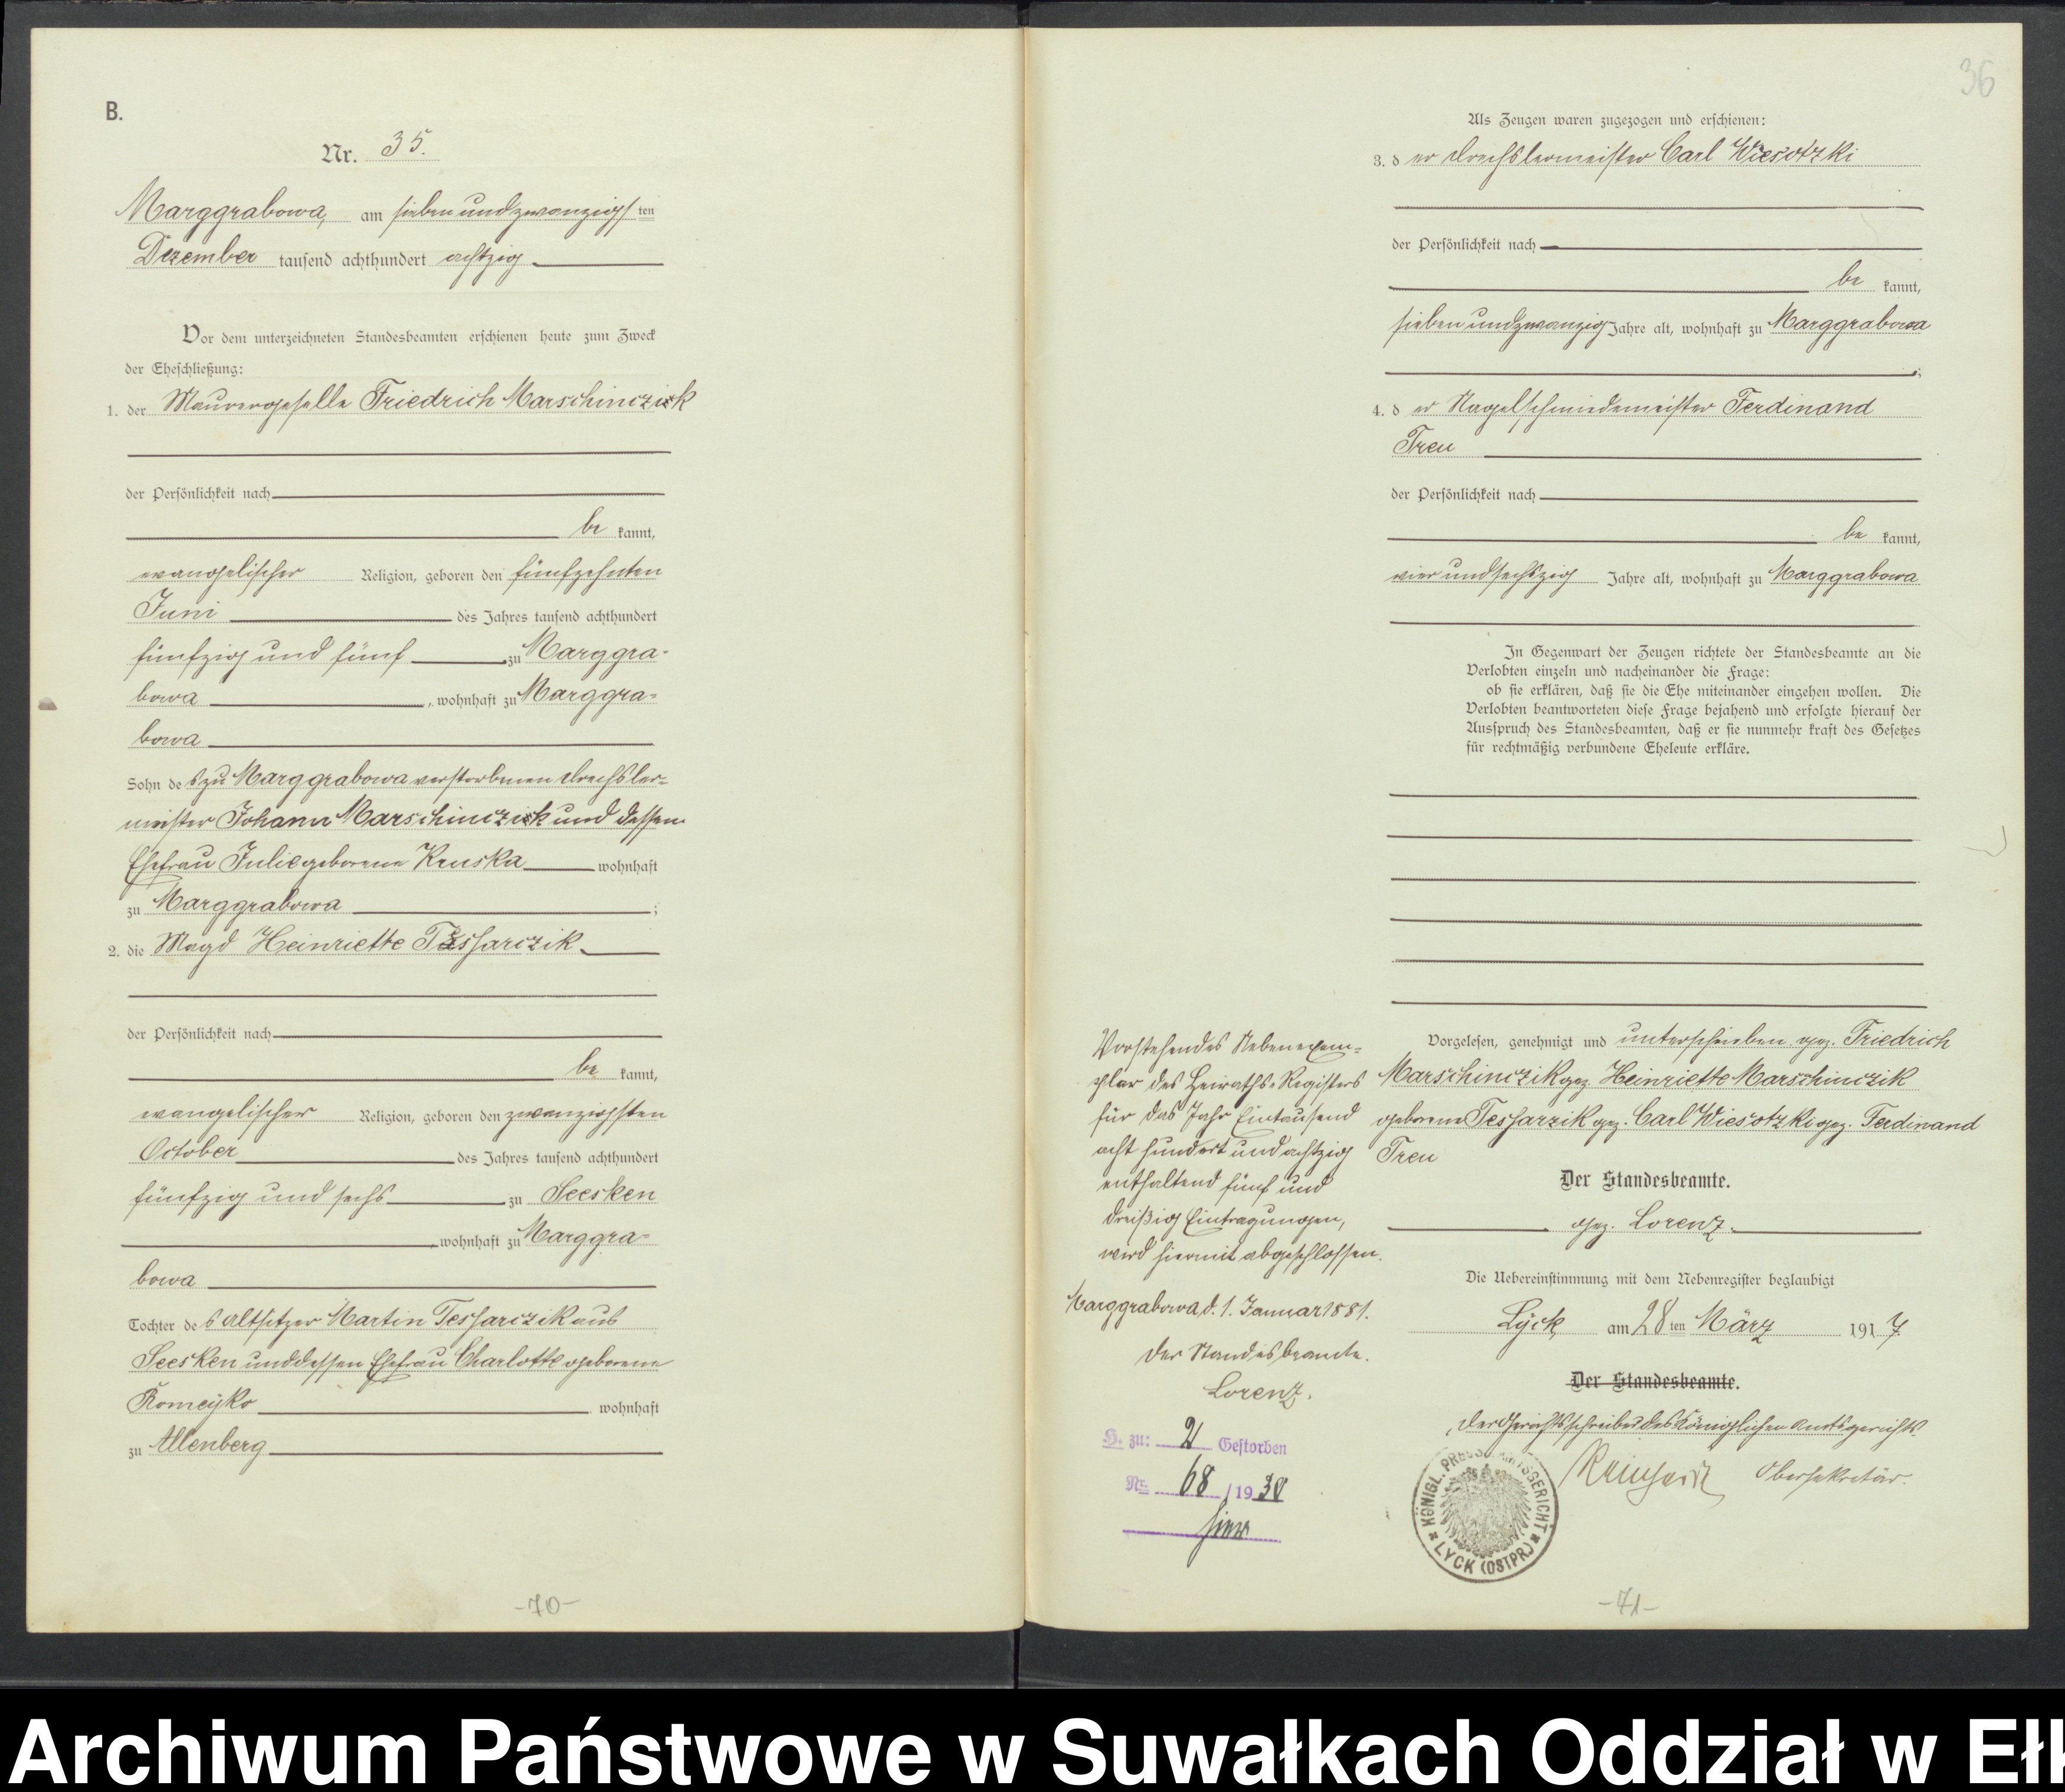 B.
Nr. 35.
Marggrabowa, am siebenundzwanzigsten
Dezember tausend achthundert achtzig
Vor dem unterzeichneten Standesbeamten erschienen heute zum Zweck
der Eheschließung:
1. der Maurergeselle Friedrich Marschinczick
der Persönlichkeit nach
be kannt,
evangelischer Religion, geboren den fünfzehnten
Juni des Jahres tausend achthundert
fünfzig und fünf zu Marggra-
bowa, wohnhaft zu Marggra-
bowa
Sohn des zu Marggrabowa verstorbenen Drechsler-
meister Johann Marschinczick und dessen
Ehefrau Julie geborene Kruska wohnhaft
zu Marggrabowa;
2. die Magd Heinriette Tessarczik
der Persönlichkeit nach
be kannt,
evangelischer Religion, geboren den zwanzigsten
October des Jahres tausend achthundert
fünfzig und sechs zu Seesken
, wohnhaft zu Marggra-
bowa
Tochter des Altsitzer Martin Tessarczik aus
Seesken und dessen Ehefrau Charlotte geborene
Romeyko wohnhaft
zu Allenberg
-70-
36
Als Zeugen waren zugezogen und erschienen:
3. der Drechslermeister Carl Wiesotzki
der Persönlichkeit nach
be kannt,
siebenundzwanzig Jahre alt, wohnhaft zu Marggrabowa
;
4. der Nagelschmiedemeister Ferdinand
Treu
der Persönlichkeit nach
be kannt,
vierundsechszig Jahre alt, wohnhaft zu Marggrabowa
In Gegenwart der Zeugen richtete der Standesbeamte an die
Verlobten einzeln und nacheinander die Frage:
ob sie erklären, daß sie die Ehe miteinander eingehen wollen. Die
Verlobten beantworteten diese Frage bejahend und erfolgte hierauf der
Ausspruch des Standesbeamten, daß er sie nunmehr kraft des Gesetzes
für rechtmäßig verbundene Eheleute erkläre.
Vorgelesen, genehmigt und unterschrieben gez. Friedrich
Marschinczik gez. Heinriette Marschinczik
geborene Tessarzik gez. Carl Wiesotzki gez. Ferdinand
Treu
Der Standesbeamte.
gez. Lorenz.
Die Uebereinstimmung mit dem Nebenregister beglaubigt
Lyck, am 28ten März 1917
Der Standesbeamte.
Der Gerichtsschreiber des Königlichen Amtsgerichts.
Obersekretär.
KÖNIGL. PREUSS. AMTSGERICHT
LYCK (OSTPR.)
Vorstehendes Nebenexem-
plar des Heiraths-Registers
für das Jahr Eintausend
acht hundert und achtzig
enthaltend fünf und
dreißig Eintragungen,
wird hiermit abgeschlossen.
Marggrabowa d. 1. Januar 1881.
Der Standesbeamte.
Lorenz.
H. zu: 2 Gestorben
Nr. 68 /1938
hier
-71-
Archiwum Państwowe w Suwałkach Oddział w Ełk